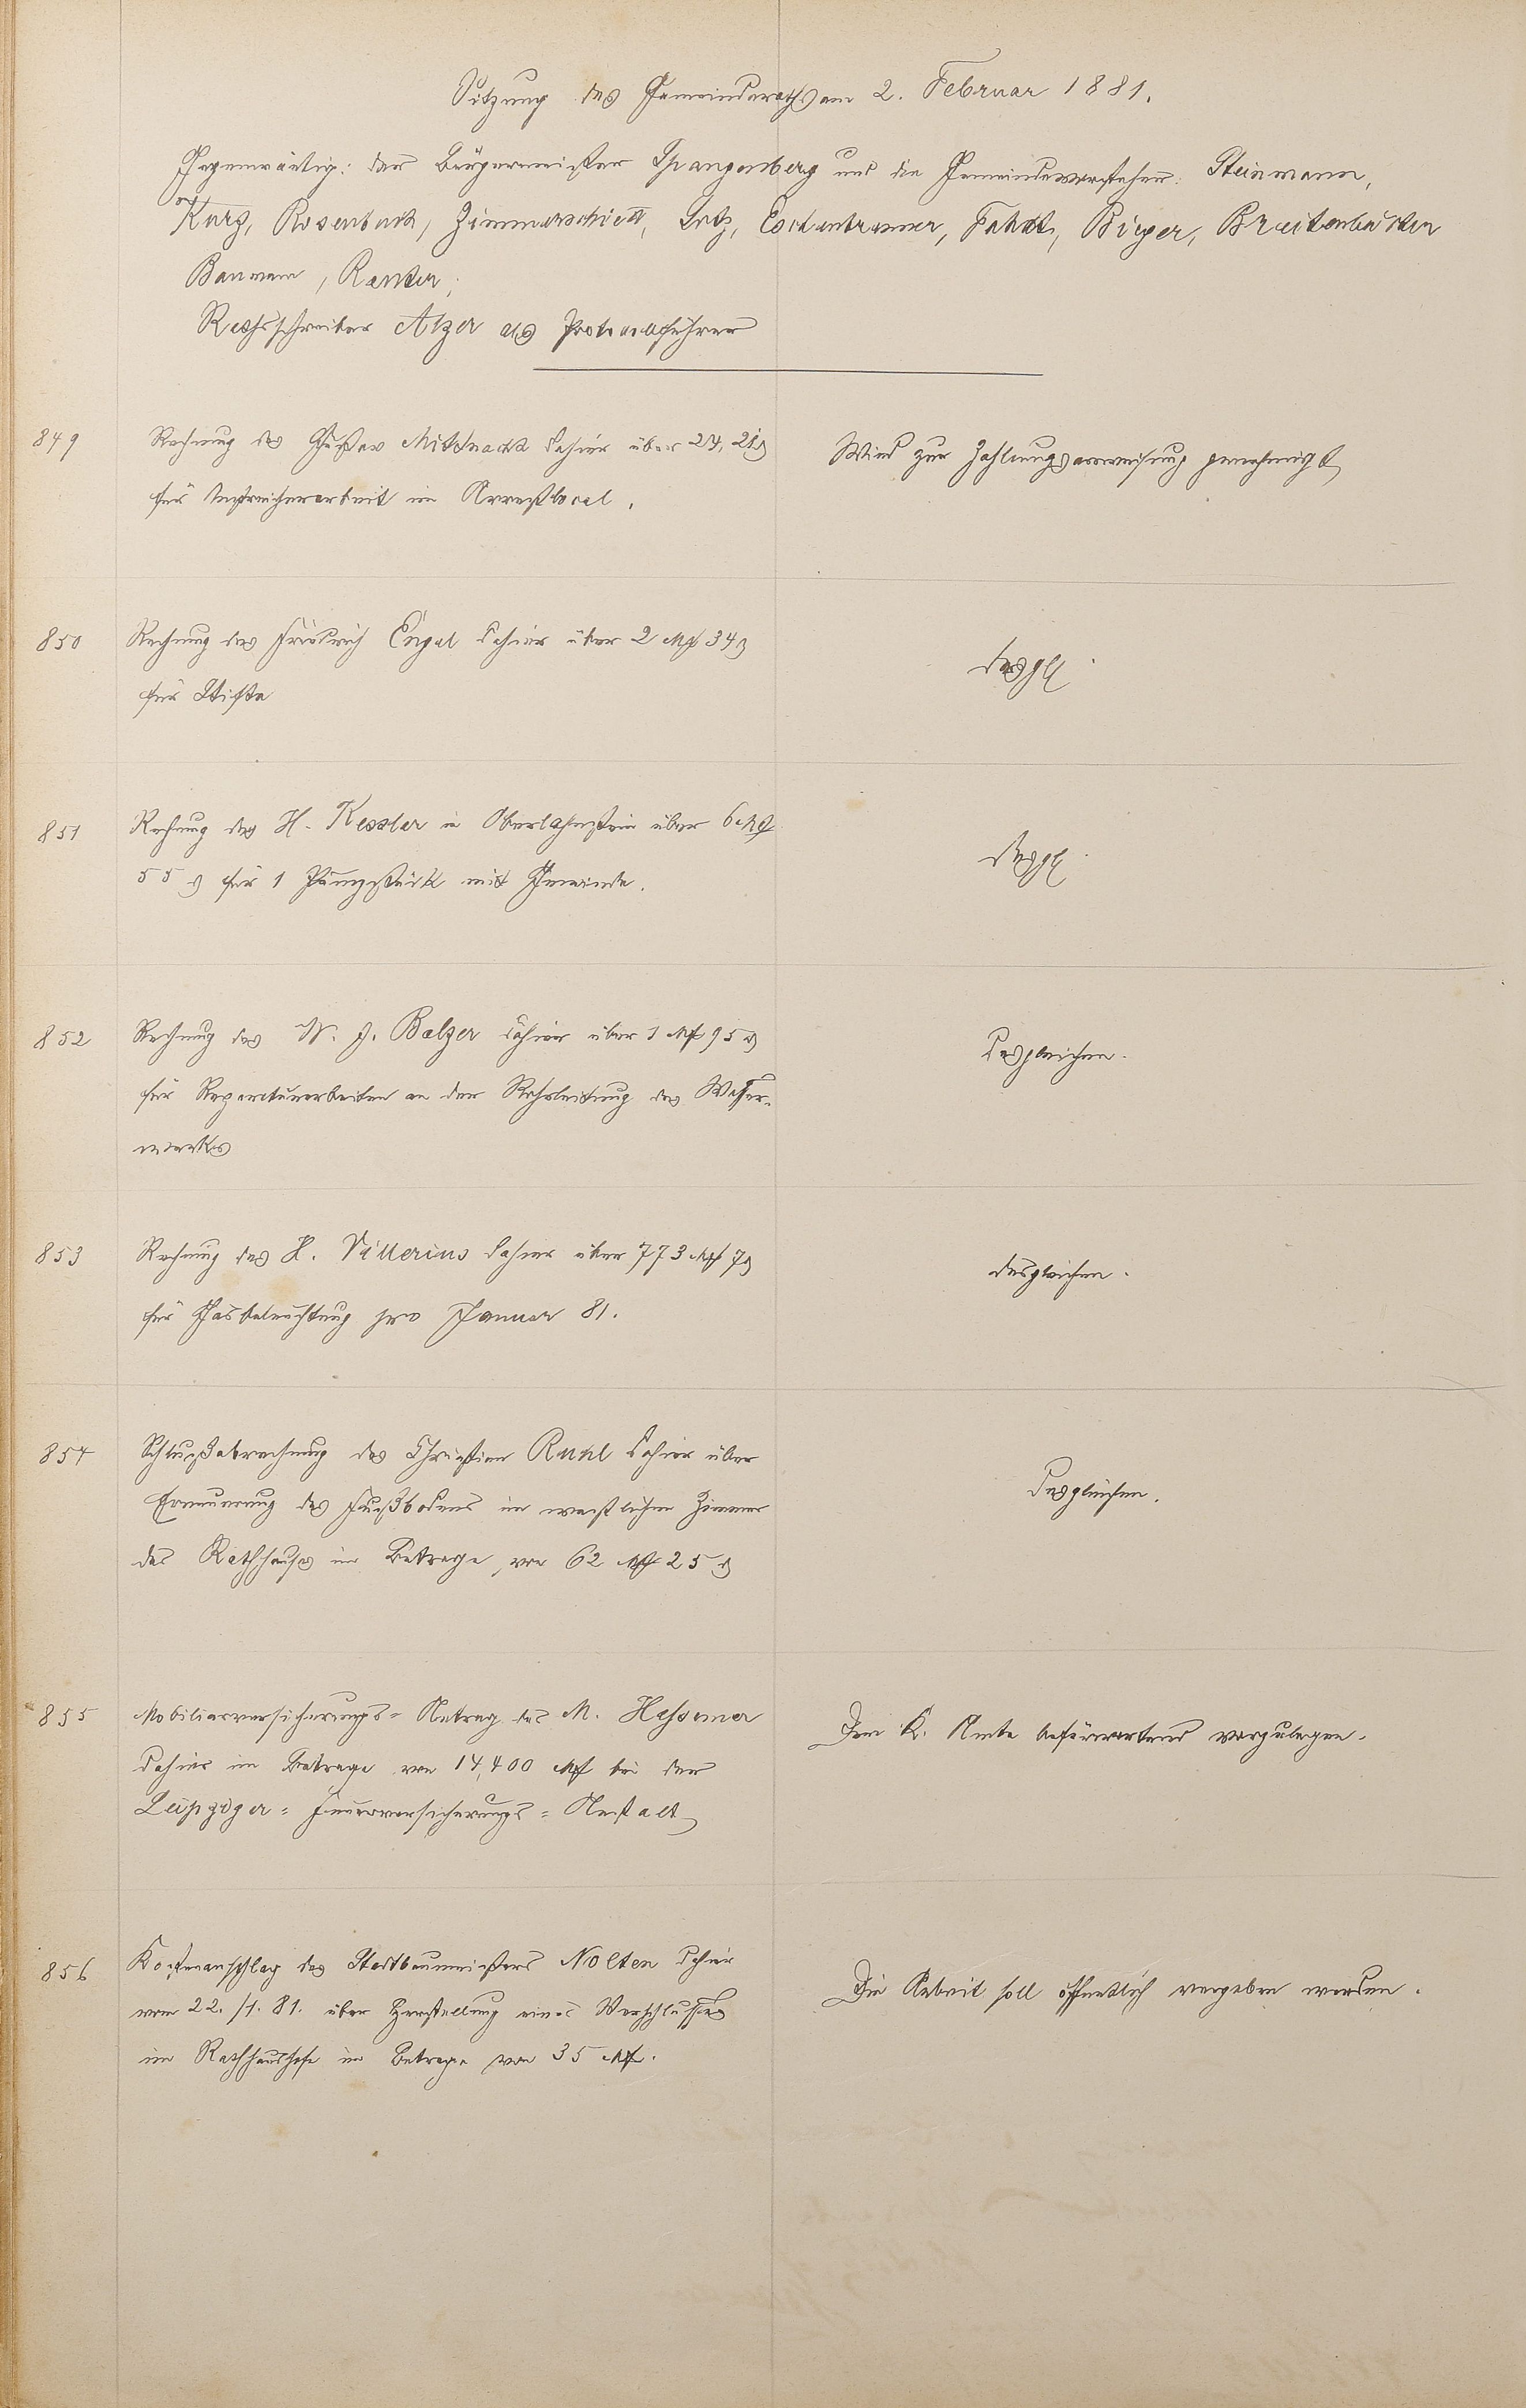 Sitzung des Gemeinderaths am 2. Februar 1881.
Gegenwärtig: der Bürgermeister Spangenberg und die Gemeindevorsteher: Steinmann,
Kurz, Rosenbach, Zimmerschied, Lotz, Eschentremer, Birger, Breitenbücher
Baumann, Ranker,
Rathsschreiber Atzer als Protocollführer
849
Rechnung des Gustav Mitdnackt dahier über 24, 21 ₰
für Anstreicherarbeit im Arrestlocal.
Wird zur Zahlungsanweisung genehmigt
850
Rechnung des Friedrich Engel dahier über 2 Mk 34 ₰
für Stifte
desgl.
851
Rechnung des H. Kessler in Oberlahnstein über 6 Mk
55 ₰ für 1 Paungstück mit Gewinde.
desgl.
852
Rechnung des W. J. Balzer dahier über 1 Mk 95 ₰
für Reparaturarbeiten an der Rohrleitung des Wasser-
werks
Desgleichen.
853
Rechnung des H. Villerius dahier über 773 Mk 7 ₰
für Gasbeleuchtung pro Januar 81.
desgleichen.
854
Schlußabrechnung des Christian Ruhl dahier über
Erneuerung des Fußbodens im westlichen Zimmer
des Rathhauses im Betrage von 62 Mk 25 ₰
Desgleichen.
855
Mobiliarversicherungs-Antrag des M. Hassemer
dahier im Betrage von 14,400 Mk bei der
Leipziger-Feuerversicherungs-Anstalt
Dem K. Amte befürwortend vorzulegen.
856
Kostenanschlag des Stadtbaumeisters Nolten dahier
vom 22./1. 81. über Herstellung eines Verschlusses
im Rathhaushofe im Betrage von 35 Mk.
Die Arbeit soll öffentlich vergeben werden.